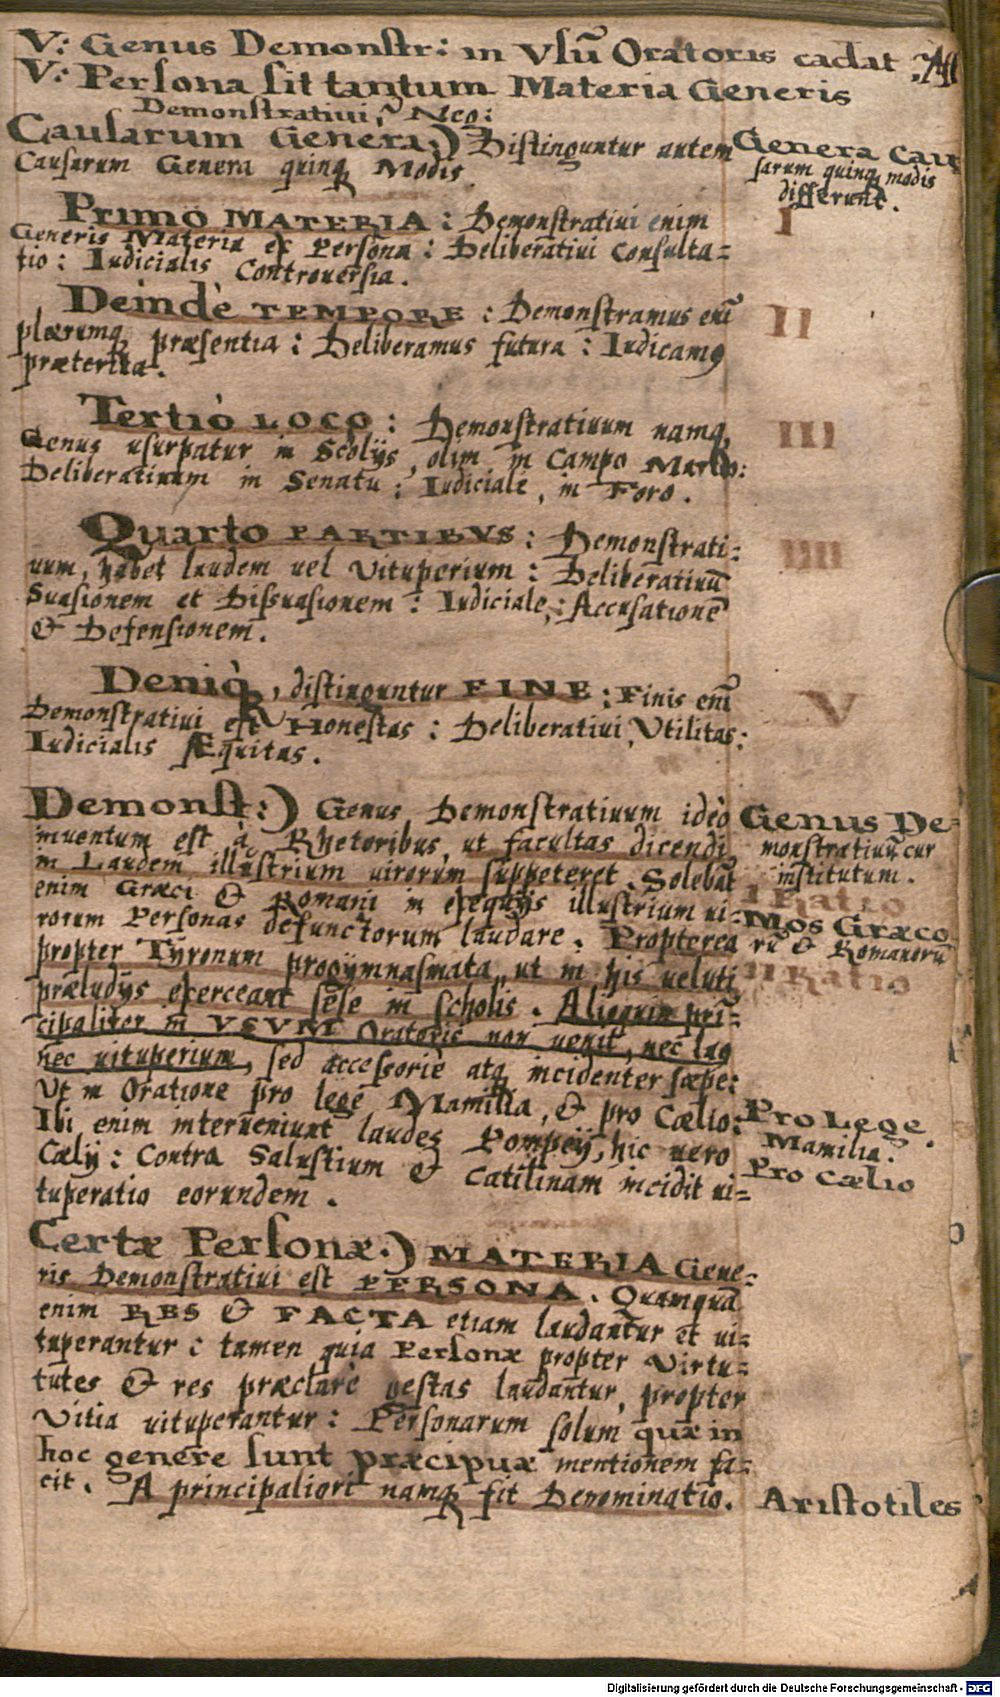 V: Genus Demonstr: in Vsũ Oratoris cadat: Aff
V: Persona sit tantum Materia Generis
Demonstratiui, Neg:
Causarum Genera:) Distinguntur autem
Causarum Genera quinq Modis.
Genera Cau
sarum quinq modis
differunt.
Primò MATERIA: Demonstratiui enim
Generis Materia est Persona: Deliberatiui Consulta=
tio: Iudicialis Controuersia.
I
Deindè TEMPORE: Demonstramus enĩ
plærumq præsentia: Deliberamus futura: Iudicamus
præterita.
II
Tertiò LOCO: Demonstratiuum namq,
Genus usurpatur in Scolijs, olim in Campo Martio:
Deliberatiuum in Senatu: Iudiciale, in Foro.
III
Quarto PARTIBVS: Demonstrati=
uum, habet laudem uel vituperium: Deliberatiuũ
Suasionem et Dissuasionem: Iudiciale: Accusationẽ
& Defensionem.
IIII
Deniq, distinguntur FINE: Finis enĩ
Demonstratiui est Honestas: Deliberatiui, Vtilitas:
Iudicialis Æquitas.
V
Demonst:) Genus Demonstratiuum ideò
inuentum est à Rhetoribus, ut facultas dicendi
in Laudem illustrium uirorum suppeteret. Solebãt
enim Græci & Romani in exequijs illustrium ui=
rorum Personas defunctorum laudare. Propterea
propter Tyronum progymnasmata, ut in his ueluti
præludijs exerceant sese in scholis. Alioquin prĩ=
cipaliter in VSVM Oratoris non uenit, nec laus
nec uituperium, sed accessoriè atq incidenter sæpe:
Vt in Oratione pro lege Mamilia, & pro Cælio:
Ibi enim interueniunt laudes Pompeij, hic uero
Cælij: Contra Salustium & Catilinam incidit ui=
tuperatio eorundem.
Genus De=
monstratiuũ cur
institutum.
I Ratio
Mos Græco
rũ & Romanorũ
II Ratio
Pro Lege
Mamilia.
Pro Cælio
Certæ Personæ.) MATERIA Gene=
ris Demonstratiui est PERSONA. Quamquã
enim RES & FACTA etiam laudantur et ui=
tuperantur: tamen quia Personæ propter Virtu=
tutes & res præclarè gestas laudantur, propter
Vitia uituperantur: Personarum solum quæ in
hoc genere sunt præcipuæ mentionem fa=
cit. A principaliori namq fit Denominatio.
Aristotiles
Digitalisierung gefördert durch die Deutsche Forschungsgemeinschaft - DFG